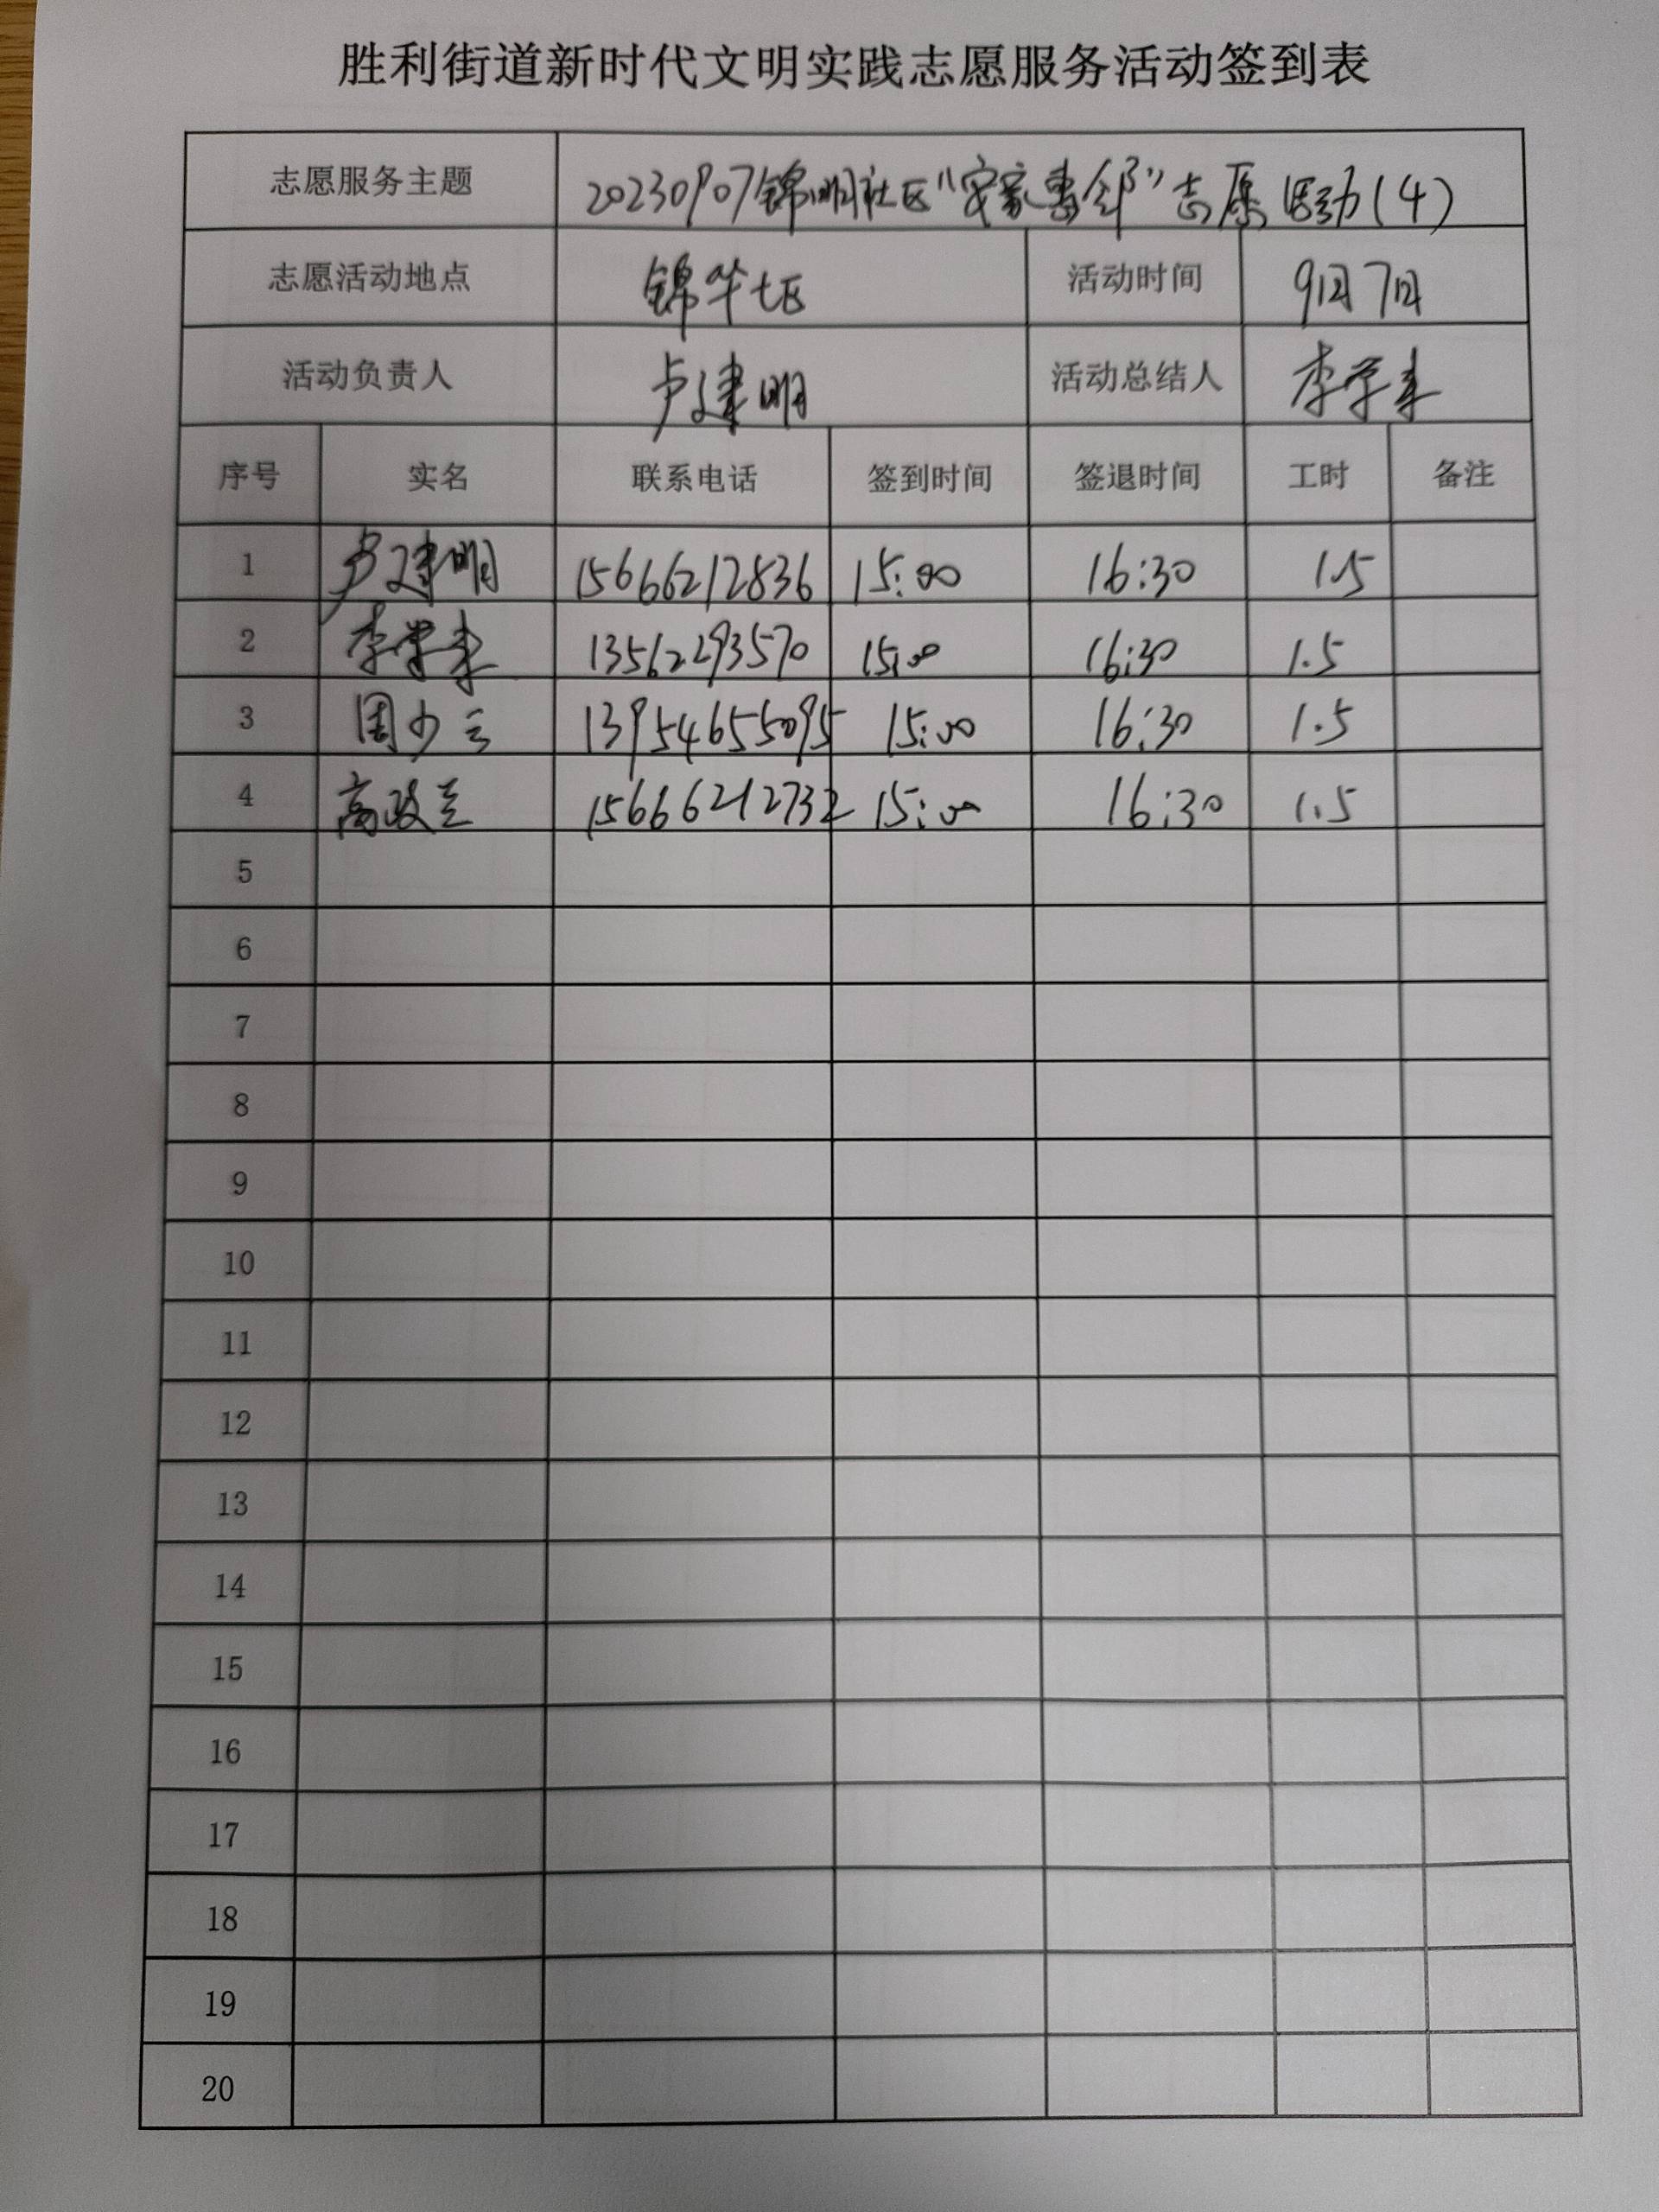 胜利街道新时代文明实践志愿服务活动签到表
志愿服务主题 20230907锦明社区“安家惠邻”志愿活动(4)
志愿活动地点 锦华七区 活动时间 9月7日
活动负责人 卢建明 活动总结人 李学来
序号 实名 联系电话 签到时间 签退时间 工时 备注
1 卢建明 15666212836 15:00 16:30 1.5
2 李学来 13562293570 15:00 16:30 1.5
3 周少云 13954655095 15:00 16:30 1.5
4 高政兰 15666212732 15:00 16:30 1.5
5
6
7
8
9
10
11
12
13
14
15
16
17
18
19
20